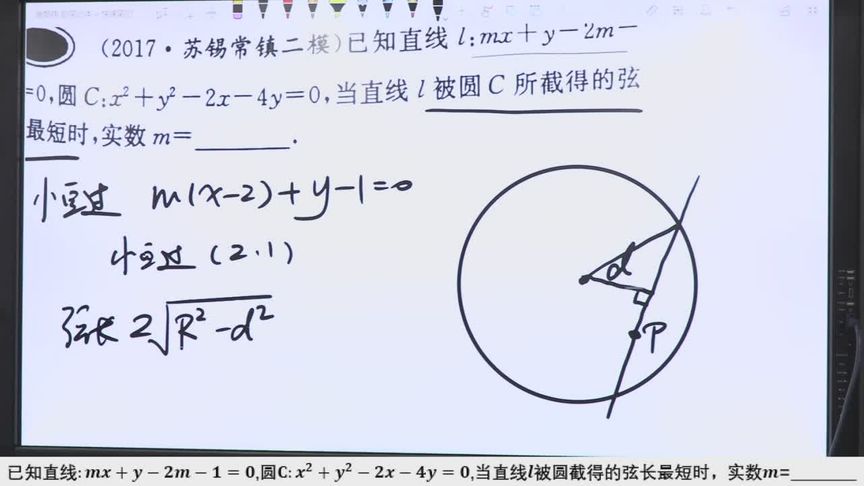 (2017·苏锡常镇二模)已知直线 l:mx+y-2m-
=0,圆 C:x²+y²-2x-4y=0,当直线 l 被圆 C 所截得的弦
最短时,实数 m=________.
恒过 m(x-2)+y-1=0
恒过 (2.1)
弦长 2√R²-d²
d
P
已知直线: mx+y-2m-1=0,圆C: x²+y²-2x-4y=0,当直线l被圆截得的弦长最短时，实数m=________